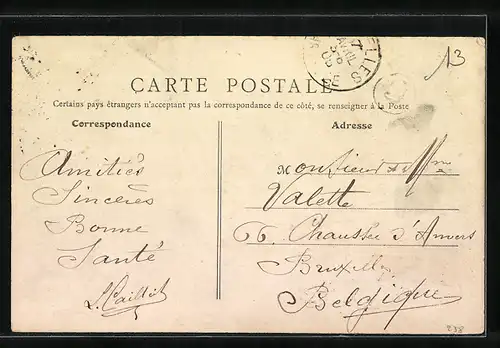 13
CARTE POSTALE
Certains pays étrangers n'acceptant pas la correspondance de ce côté, se renseigner à la Poste
Correspondance
Adresse
Amitiés
Sincères
Bonne
Santé
L. Caillet
Monsieur
Valette
66 Chaussée d'Anvers
Bruxelles
Belgique
238